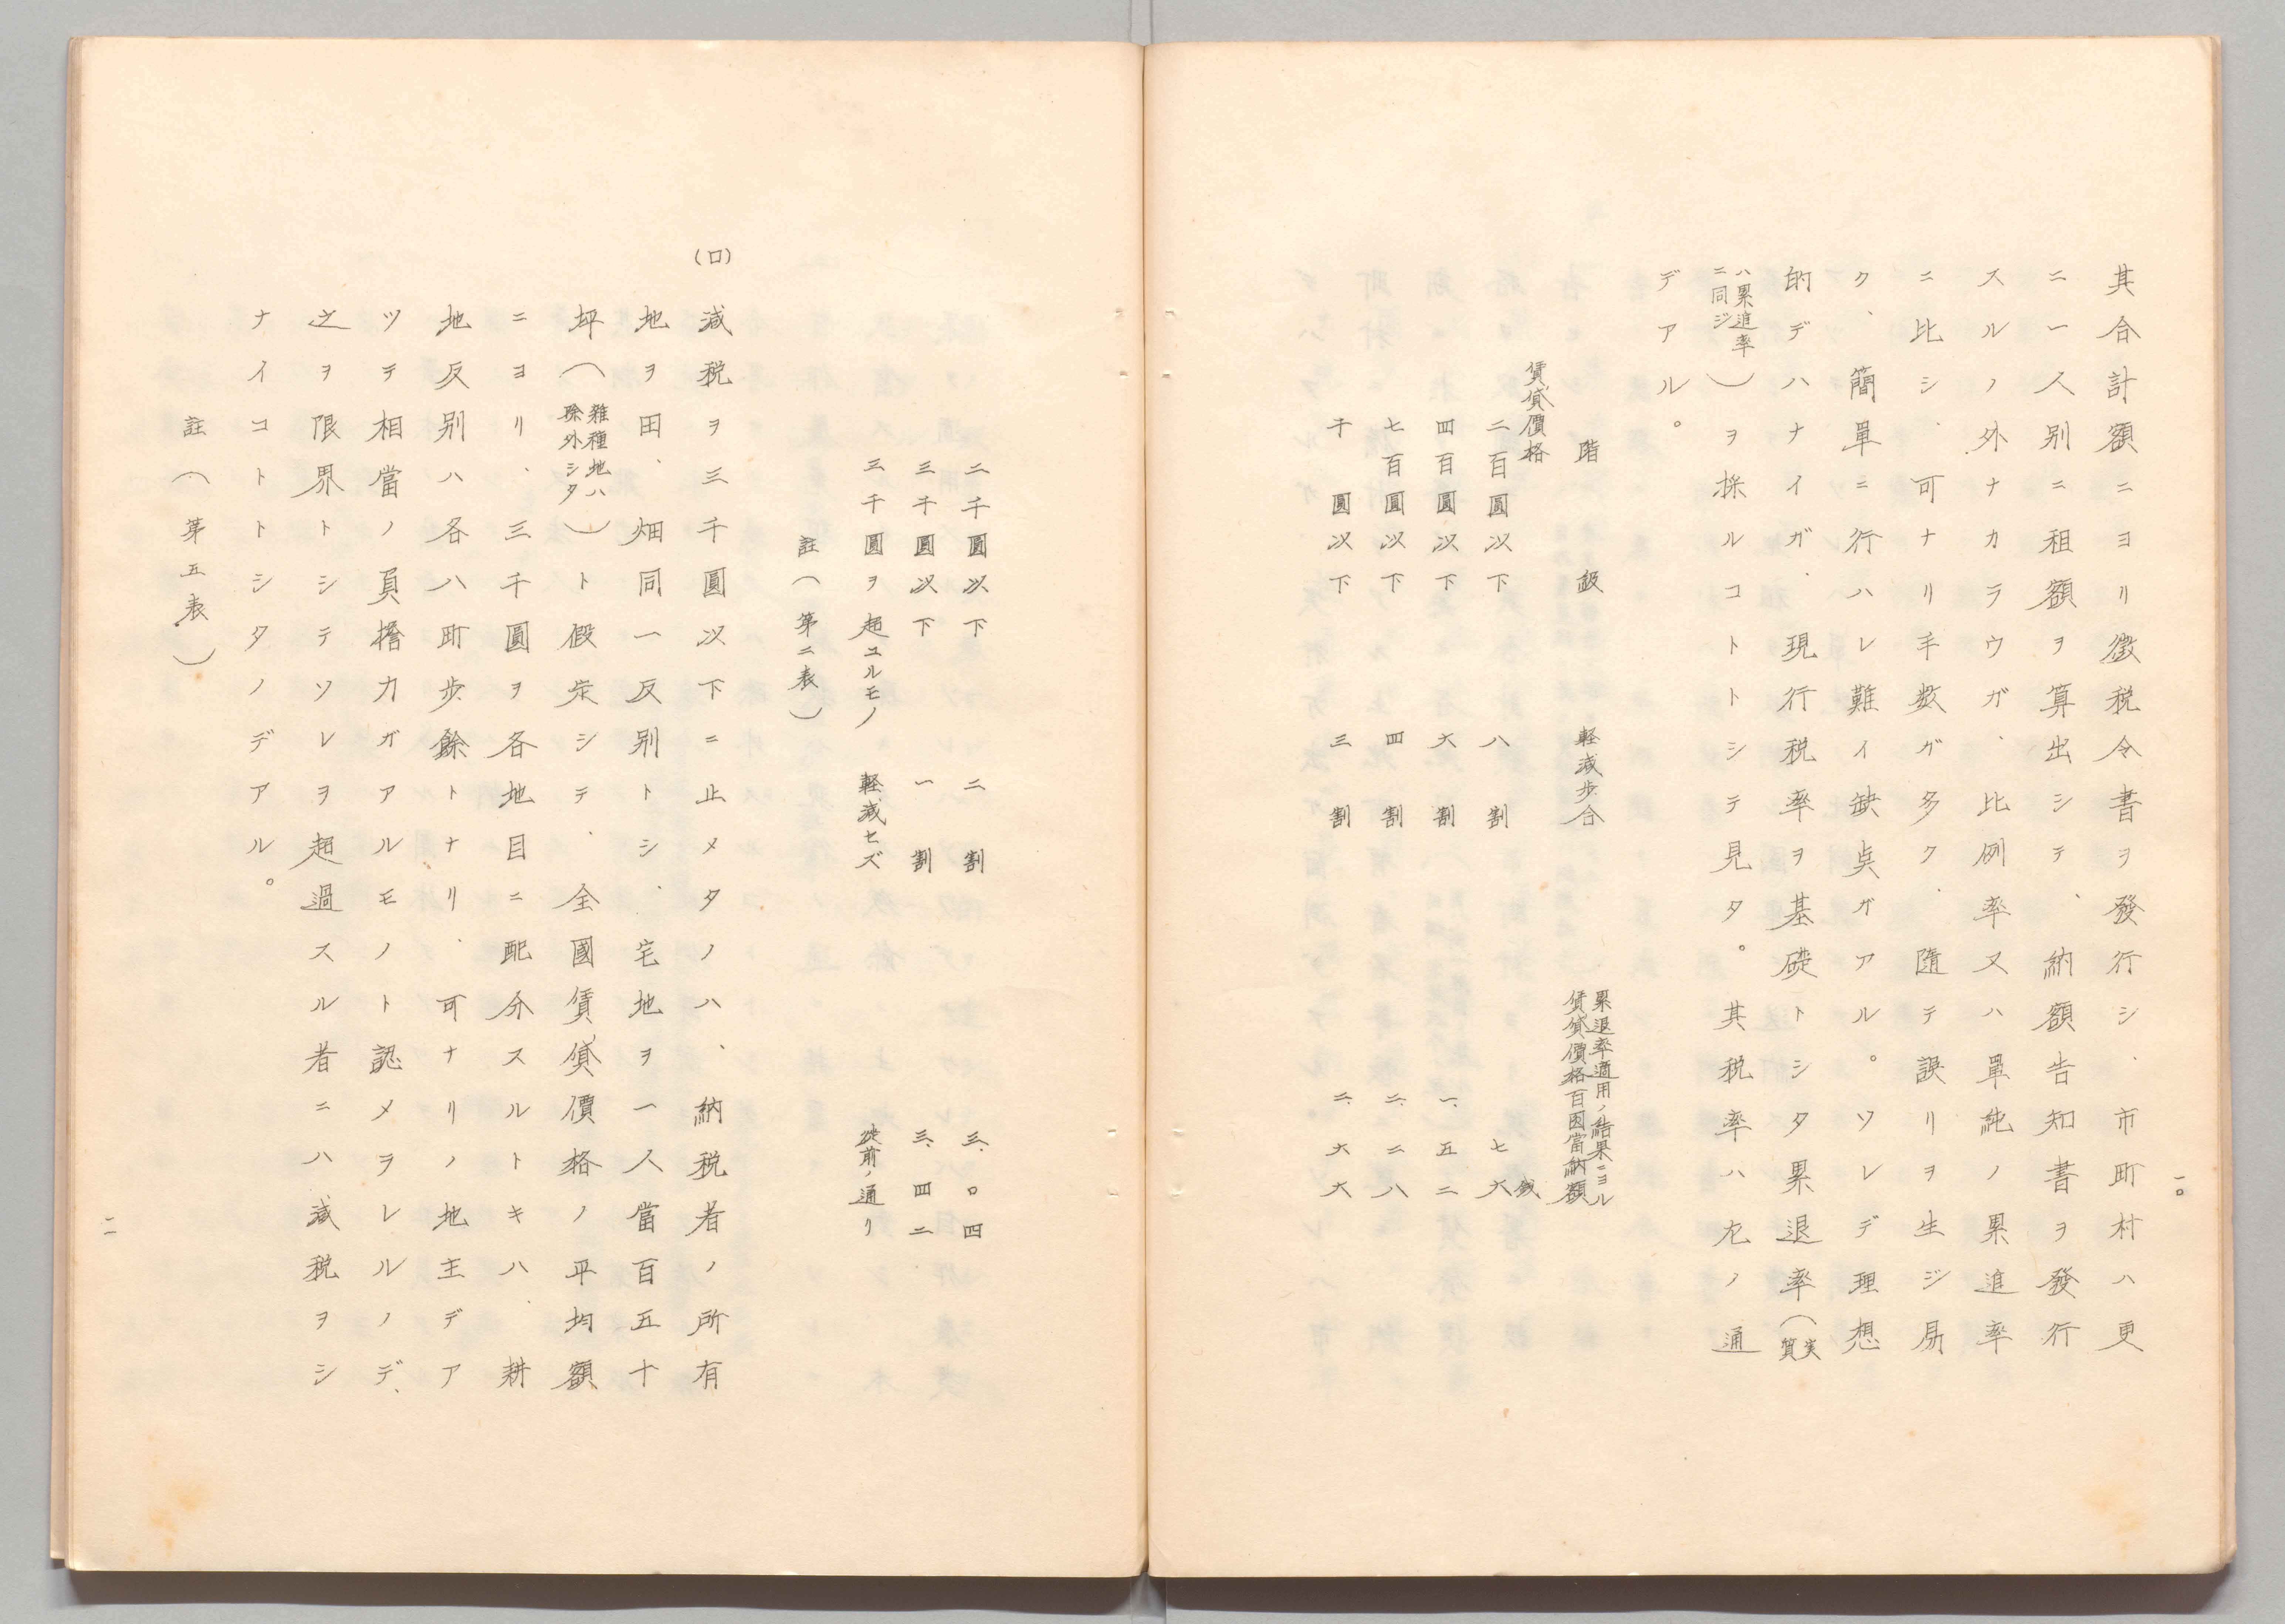 其合計額ニヨリ徴税令書ヲ發行シ、市町村ハ更
ニ一人別ニ租額ヲ算出シテ、納額告知書ヲ發行
スルノ外ナカラウガ、比例率又ハ單純ノ累進率
ニ比シ、可ナリ手数ガ多ク、隨テ誤リヲ生ジ易
ク、簡單ニ行ハレ難イ缺点ガアル。ソレデ理想
的デハナイガ、現行税率ヲ基礎トシタ累退率(実質
ハ累進率ニ同ジ)ヲ採ルコトトシテ見タ。其税率ハ左ノ通
デアル。
階級 軽減歩合 累退率適用ノ結果ニヨル賃貸價格百円當納額
賃貸價格
二百圓以下 八割 七六銭
四百圓以下 六割 一、五二
七百圓以下 四割 二、二八
千圓以下 三割 二、六六
一〇
二千圓以下 二割 三、〇四
三千圓以下 一割 三、四二
三千圓ヲ超ユルモノ 軽減セズ 従前ノ通リ
註(第二表)
(ロ)
減税ヲ三千圓以下ニ止メタノハ、納税者ノ所有
地ヲ田、畑同一反別トシ、宅地ヲ一人當百五十
坪(雑種地ハ除外シタ)ト假定シテ、全國賃貸價格ノ平均額
ニヨリ、三千圓ヲ各地目ニ配分スルトキハ、耕
地反別ハ各八町歩餘トナリ、可ナリノ地主デア
ツテ相當ノ負擔力ガアルモノト認メラレルノデ、
之ヲ限界トシテソレヲ超過スル者ニハ減税ヲシ
ナイコトトシタノデアル。
註(第五表)
一一